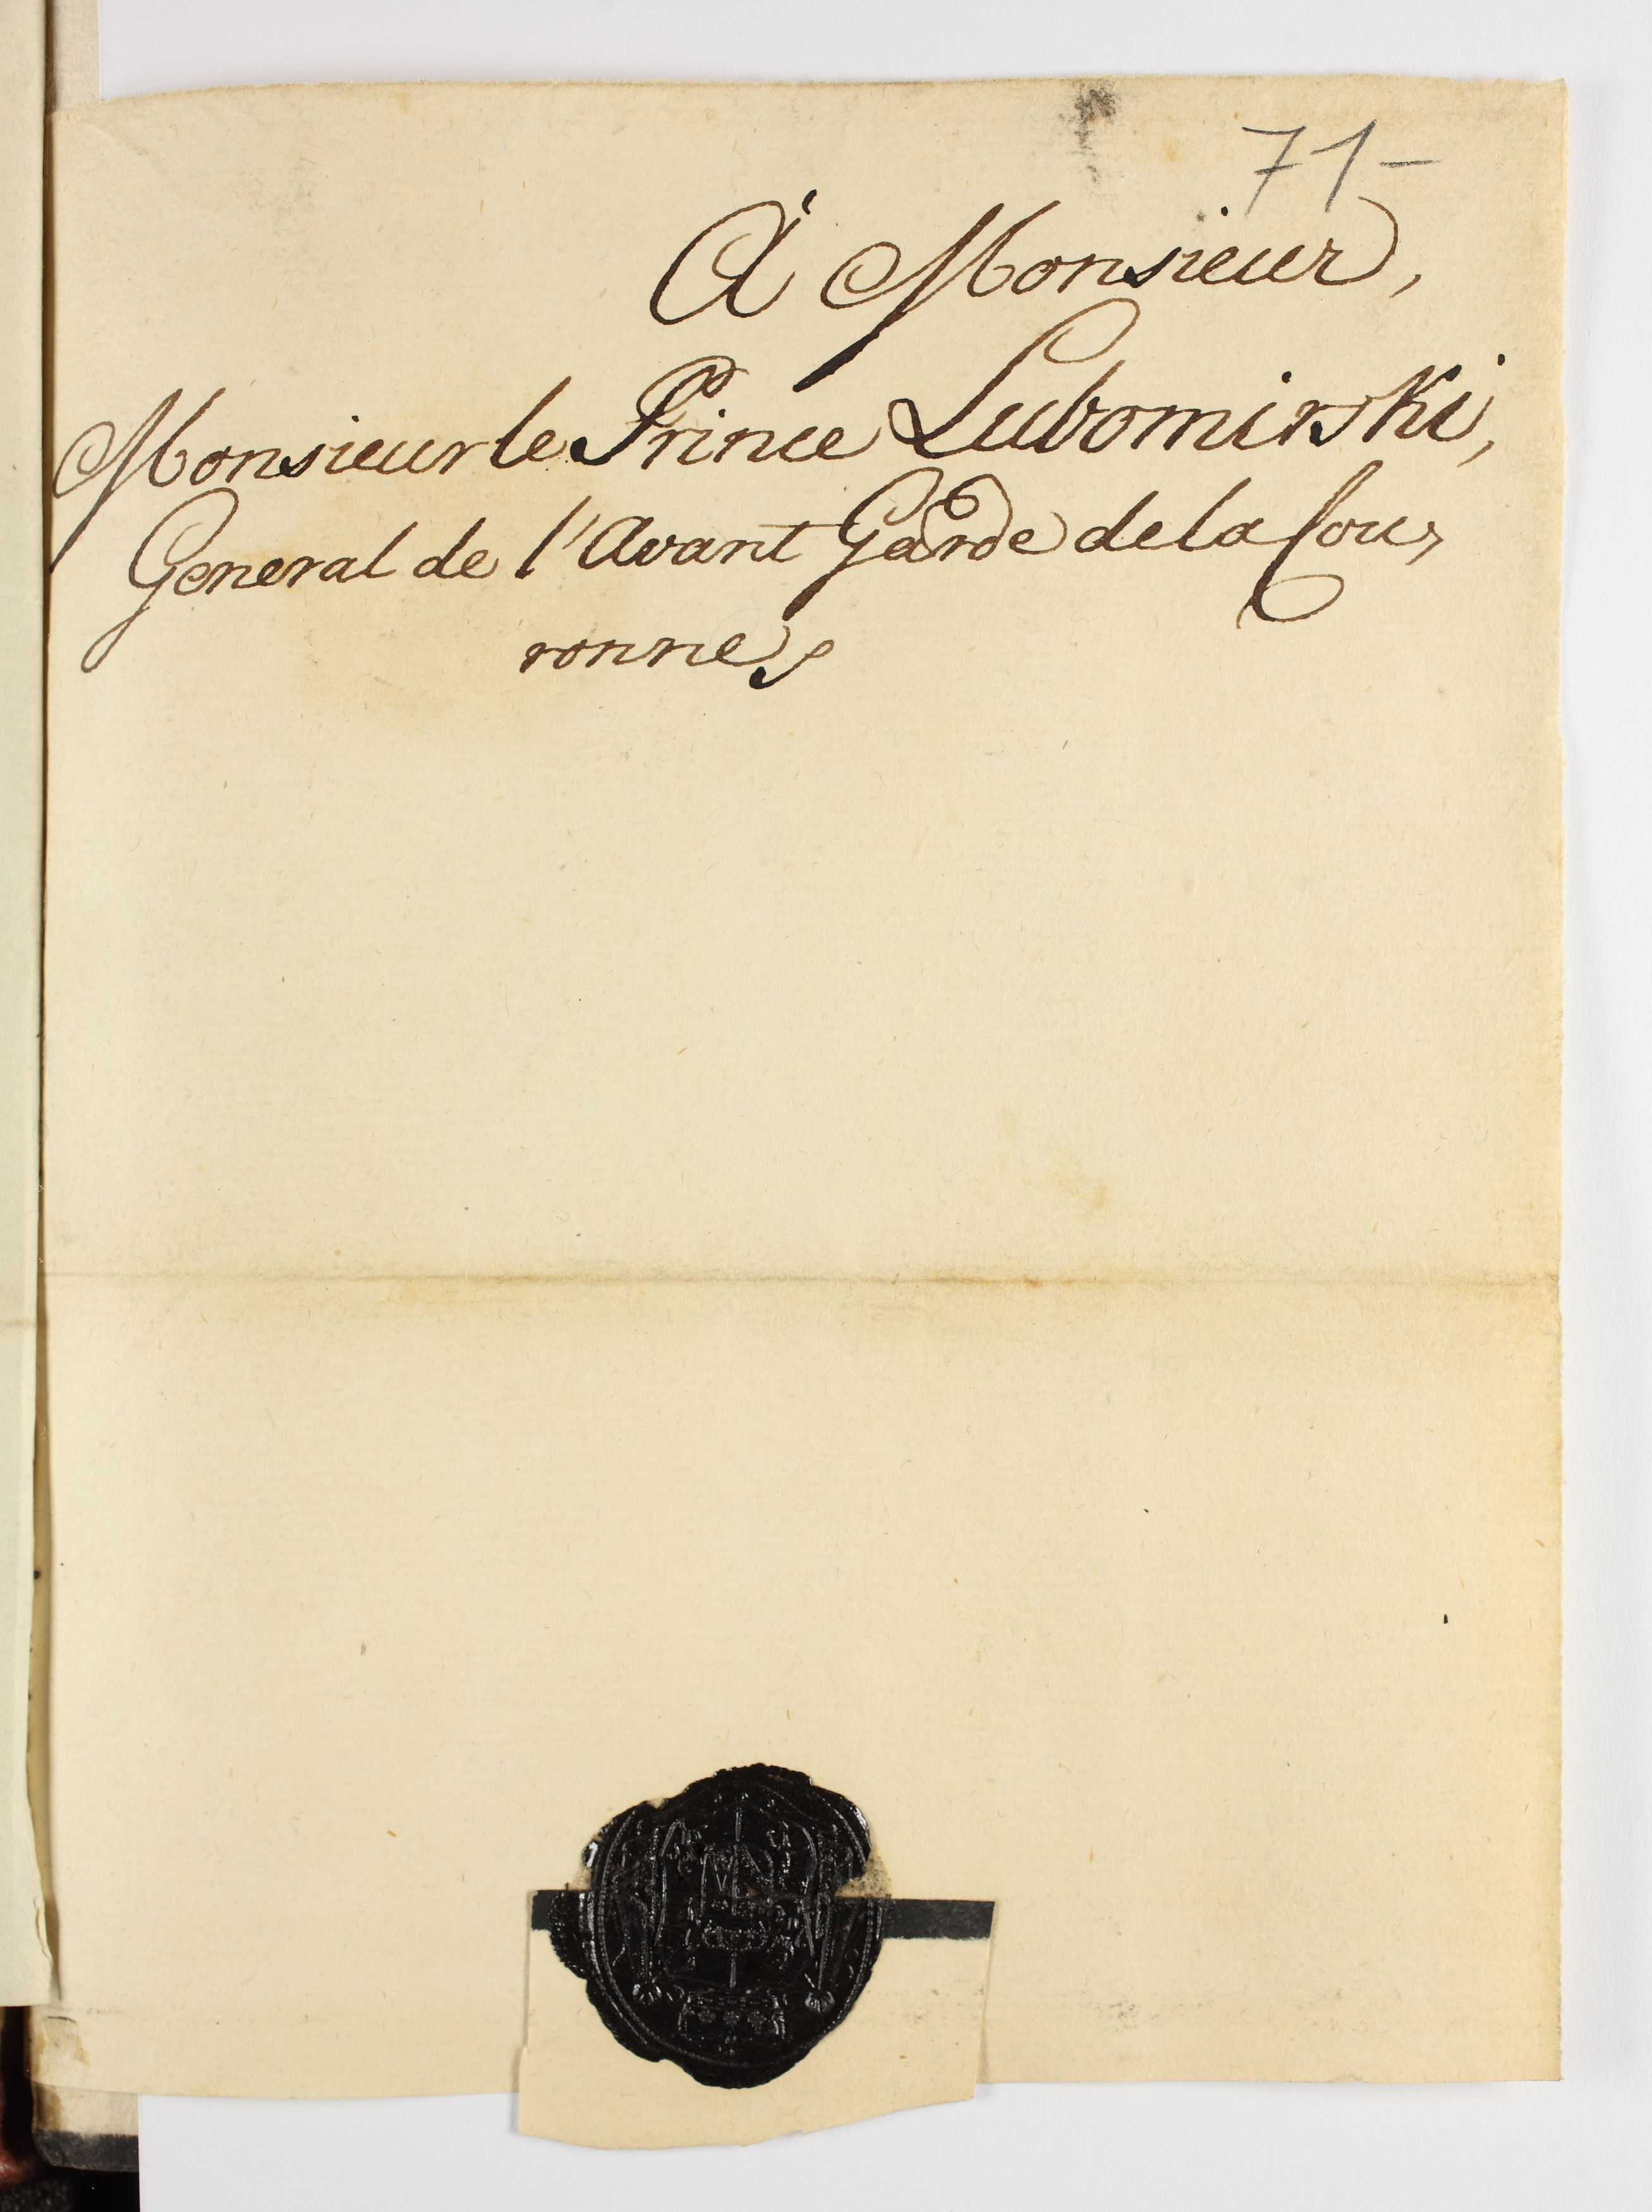 71-
A' Monsieur,
Monsieur le Prince Lubomirski,
General de l'Avant Garde de la Cou,
ronne,